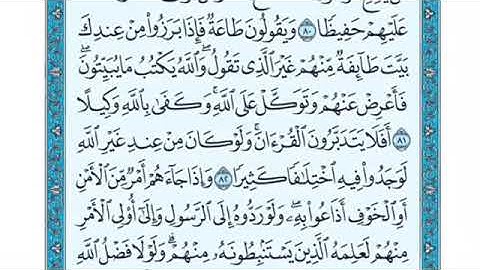 عَلَيْهِمْ حَفِيظًا ٨٠ وَيَقُولُونَ طَاعَةٌ فَإِذَا بَرَزُوا۟ مِنْ عِندِكَ
بَيَّتَ طَآئِفَةٌ مِّنْهُمْ غَيْرَ ٱلَّذِى تَقُولُ ۖ وَٱللَّهُ يَكْتُبُ مَا يُبَيِّتُونَ ۖ
فَأَعْرِضْ عَنْهُمْ وَتَوَكَّلْ عَلَى ٱللَّهِ ۚ وَكَفَىٰ بِٱللَّهِ وَكِيلًا
٨١ أَفَلَا يَتَدَبَّرُونَ ٱلْقُرْءَانَ ۚ وَلَوْ كَانَ مِنْ عِندِ غَيْرِ ٱللَّهِ
لَوَجَدُوا۟ فِيهِ ٱخْتِلَـٰفًا كَثِيرًا ٨٢ وَإِذَا جَآءَهُمْ أَمْرٌ مِّنَ ٱلْأَمْنِ
أَوِ ٱلْخَوْفِ أَذَاعُوا۟ بِهِۦ ۖ وَلَوْ رَدُّوهُ إِلَى ٱلرَّسُولِ وَإِلَىٰٓ أُو۟لِى ٱلْأَمْرِ
مِنْهُمْ لَعَلِمَهُ ٱلَّذِينَ يَسْتَنۢبِطُونَهُۥ مِنْهُمْ ۗ وَلَوْلَا فَضْلُ ٱللَّهِ